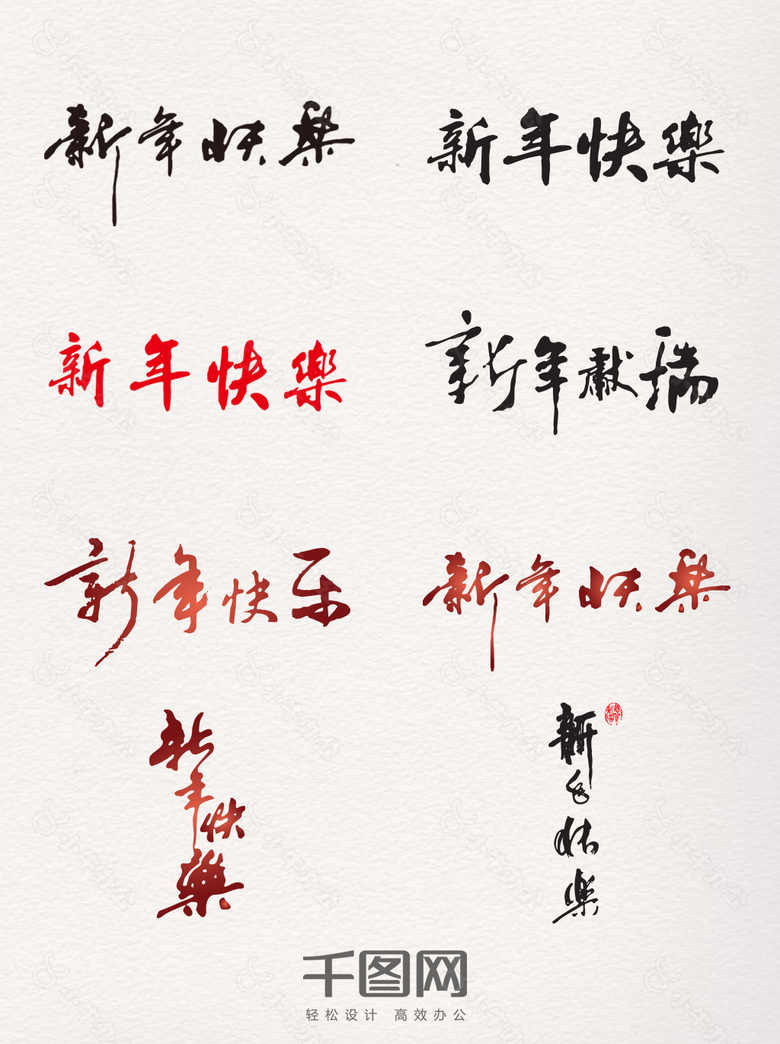 新年快樂
新年快樂
新年快樂
新年獻瑞
新年快乐
新年快樂
新年快樂
新年快樂
千图网
轻松设计 高效办公